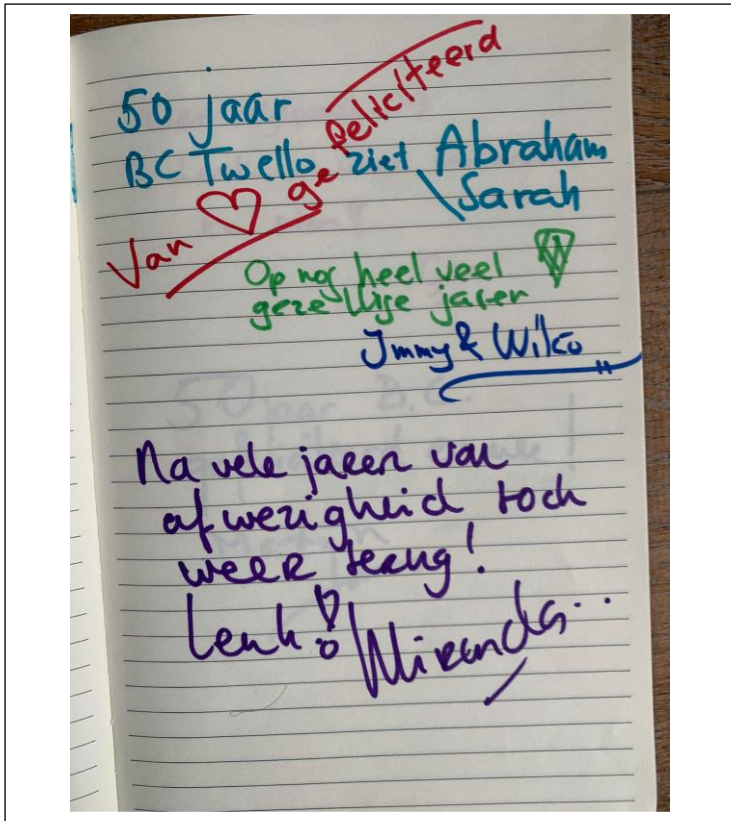 50 jaar
BC Twello ziet Abraham
\ Sarah
Van ♡ gefeliciteerd
Op nog heel veel
gezellige jaren
Immy & Wilco
Na vele jaren van
afwezigheid toch
weer terug!
Leuk!
Miranda..